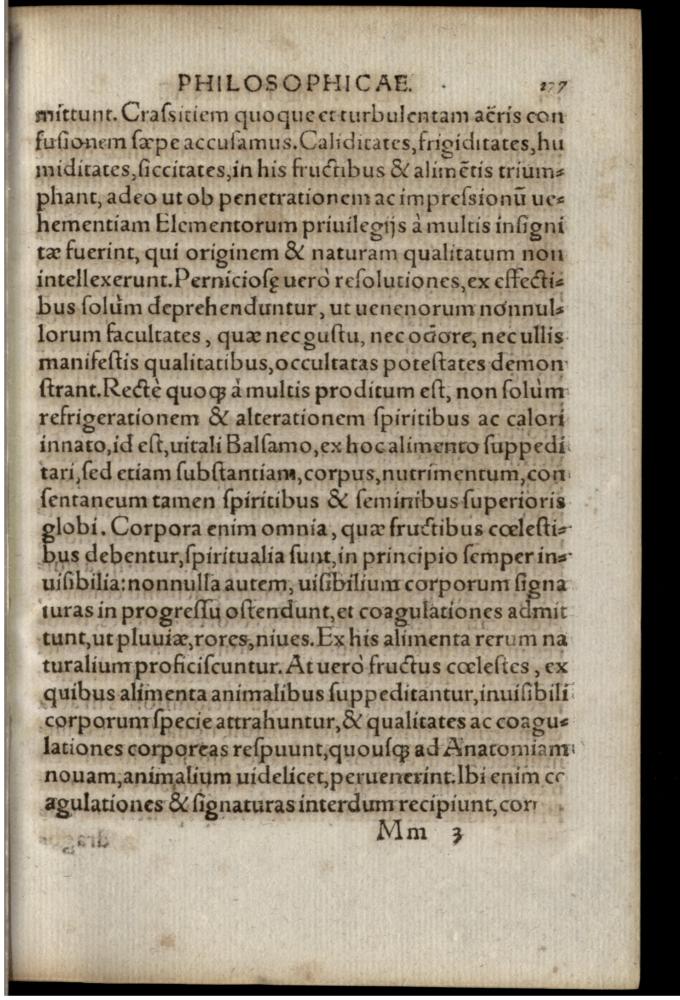 PHILOSOPHICAE. 277
mittunt. Craſsitiem quoque et turbulentam aëris con
fuſionem ſæpe accuſamus. Caliditates, frigiditates, hu
miditates, ſiccitates, in his fructibus & alimẽtis trium⸗
phant, adeo ut ob penetrationem ac impreſsionũ ue⸗
hementiam Elementorum priuilegijs à multis inſigni
tæ fuerint, qui originem & naturam qualitatum non
intellexerunt. Pernicioſę uerò reſolutiones, ex effecti⸗
bus ſolùm deprehenduntur, ut uenenorum nonnul⸗
lorum facultates, quæ nec guſtu, nec odore, nec ullis
manifeſtis qualitatibus, occultatas poteſtates demon
ſtrant. Rectè quoq; à multis proditum eſt, non ſolùm
refrigerationem & alterationem ſpiritibus ac calori
innato, id eſt, uitali Balſamo, ex hoc alimento ſuppedi
tari, ſed etiam ſubſtantiam, corpus, nutrimentum, con
ſentaneum tamen ſpiritibus & ſeminibus ſuperioris
globi. Corpora enim omnia, quæ fructibus cœleſti⸗
bus debentur, ſpiritualia ſunt, in principio ſemper in⸗
uiſibilia: nonnulla autem, uiſibilium corporum ſigna
turas in progreſſu oſtendunt, et coagulationes admit
tunt, ut pluuiæ, rores, niues. Ex his alimenta rerum na
turalium proficiſcuntur. At uerò fructus cœleſtes, ex
quibus alimenta animalibus ſuppeditantur, inuiſibili
corporum ſpecie attrahuntur, & qualitates ac coagu⸗
lationes corporeas reſpuunt, quouſq; ad Anatomiam
nouam, animalium uidelicet, peruenerint. Ibi enim co
agulationes & ſignaturas interdum recipiunt, con
Mm 3